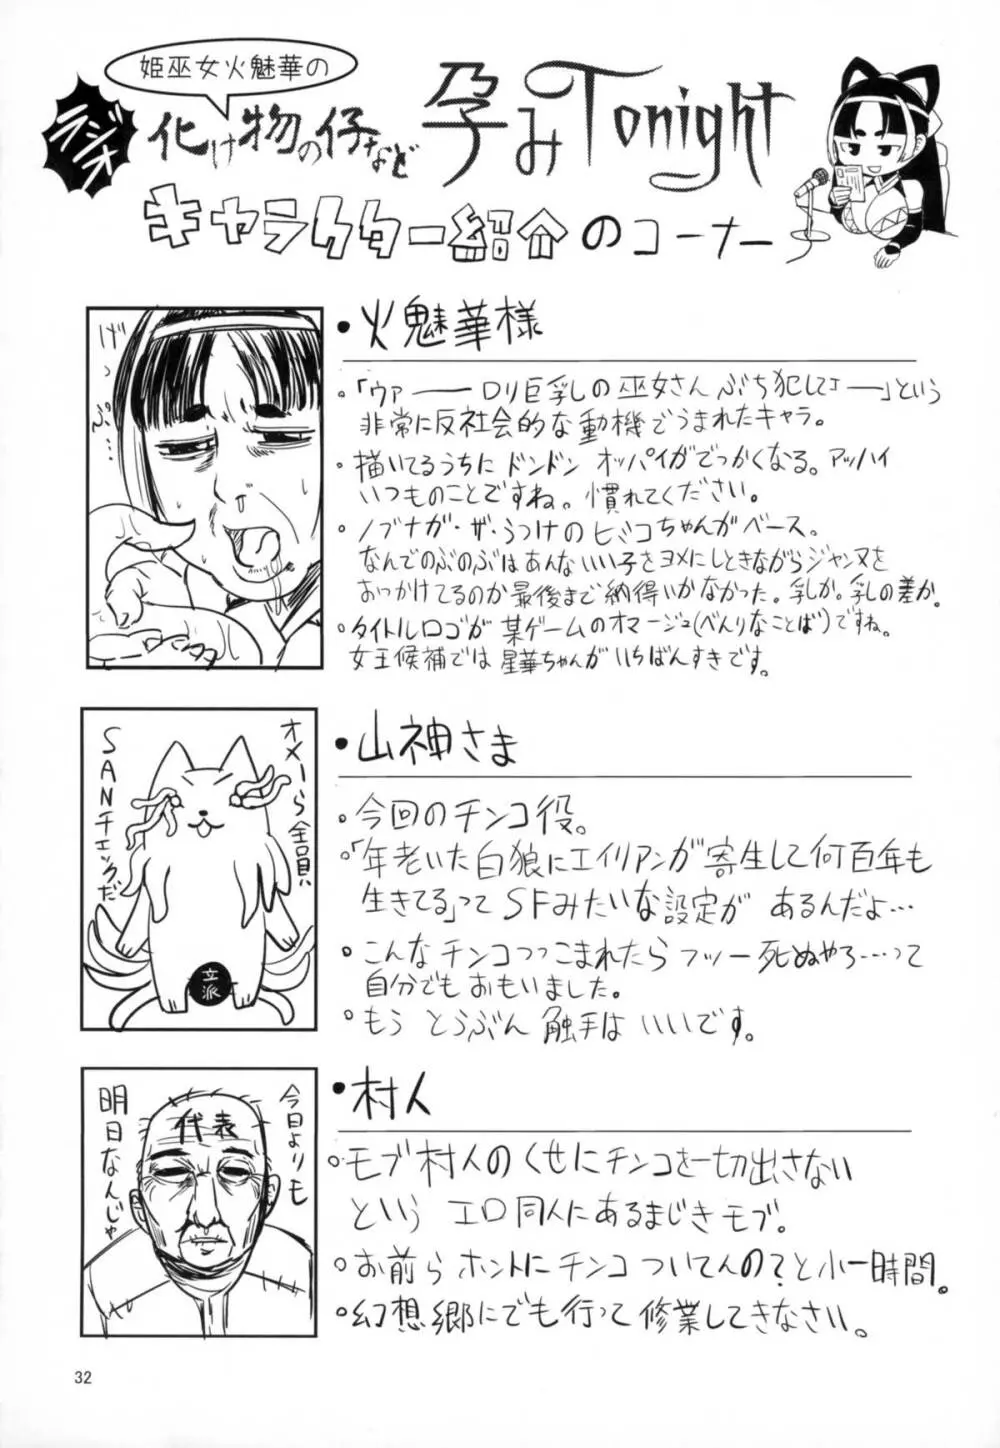 姫巫女火魅華の
ラジオ
化け物の仔など孕みTonight
キャラクター紹介のコーナー
げっぷ…
エーローイムタ
・火魅華様
・描いてるうちにドンドンオッパイがでっかくなる。アッハイ
いつものことですね。慣れてください。
・ノブナガ・ザ・うつけのヒミコちゃんがベース。
なんでのぶのぶはあんないい子をヨメにしときながらジャンヌを
おっかけてるのか最後まで納得いかなかった。乳か。乳の差か。
・タイトルロゴが某ゲームのオマージュ(べんりなことば)ですね。
女王候補では星華ちゃんがいちばんすきです。
オメーら全員
SANチェックだ
立派
・山神さま
・今回のチンコ役。
・「年老いた白狼にエイリアンが寄生して何百年も
生きてる」ってSFみたいな設定があるんだよ…
・こんなチンコつっこまれたらフツー死ぬやろ…って
自分でもおもいました。
・もうとうぶん触手はいいです。
今日よりも
明日なんじゃ
代表
・村人
・モブ村人のくせにチンコを一切出さない
というエロ同人にあるまじきモブ。
・お前らホントにチンコついてんの?と小一時間。
・幻想郷にでも行って修業してきなさい。
32